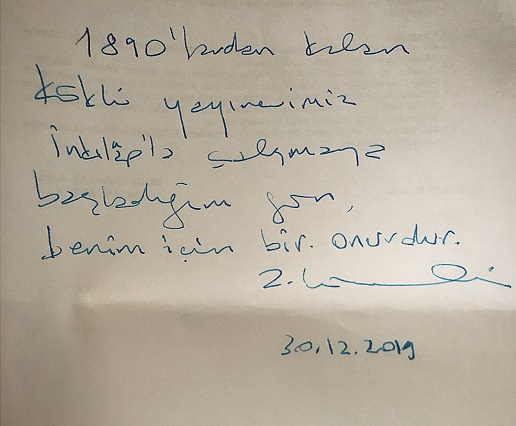 1890'lardan kalan
köklü yayınevimiz
İnkılâp'la çalışmaya
başladığım gün,
benim için bir onurdur.
Z.
30.12.2019